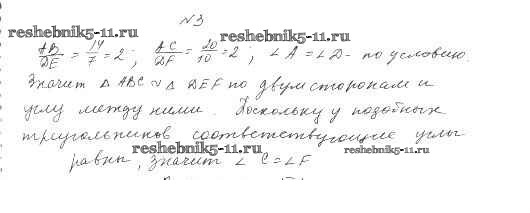 №3
reshebnik5-11.ru
reshebnik5-11.ru
AB/DE = 14/7 = 2; AC/DF = 20/10 = 2; ∠A = ∠D - по условию.
Значит △ ABC ∾ △ DEF по двум сторонам и
углу между ними. Поскольку у подобных
треугольников соответствующие углы
равны, значит ∠C = ∠F
reshebnik5-11.ru
reshebnik5-11.ru